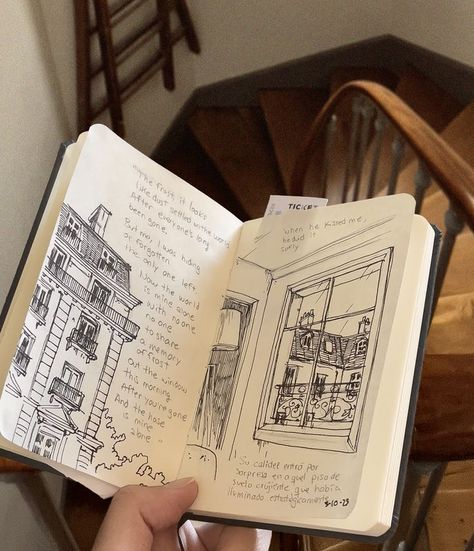 maybe frost, it looks
like dust settled on the world
After everyone's long
been gone.
But me, I was hiding
or forgotten
the only one left
Now the world
is mine alone
with no one
no one
to share
a memory
of frost
out the window
this morning
After you're gone
And the house
is mine
alone
TICKET
when he kissed me,
he did it
"Su calidez entró por
sorpresa en aquel piso de
suelo crujiente que había
iluminado estratégicamente